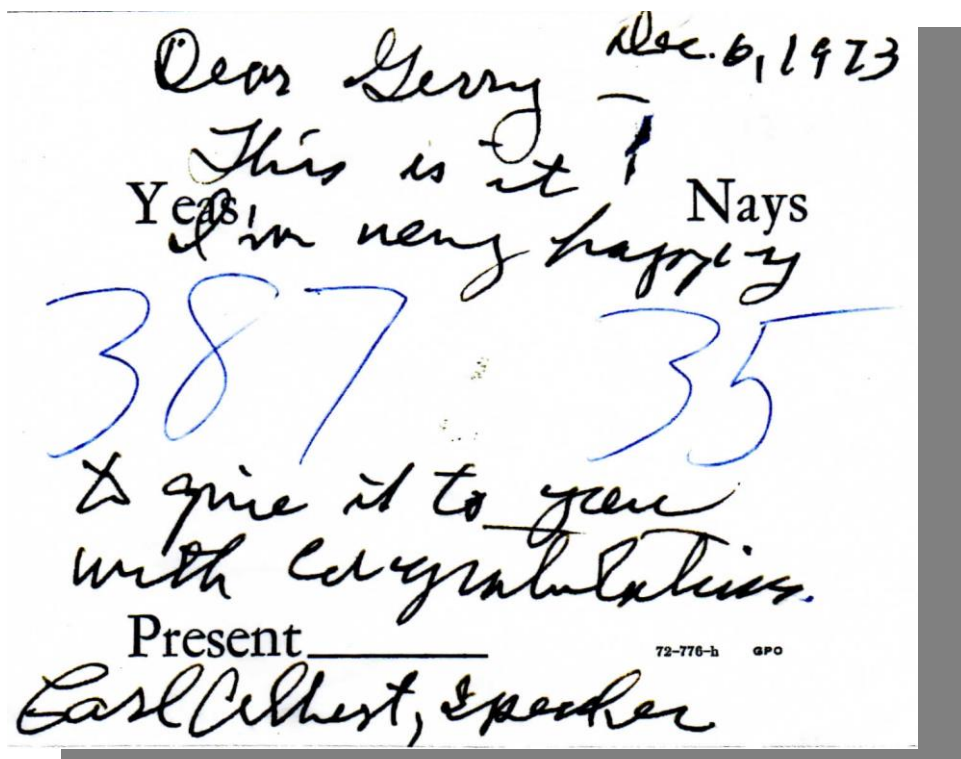 Dec. 6, 1973
Dear Gerry –
This is it !
Yeas Nays
I'm very happy
387 35
to give it to you
with congratulations.
Present
72-776-h GPO
Earl Albert, Speaker